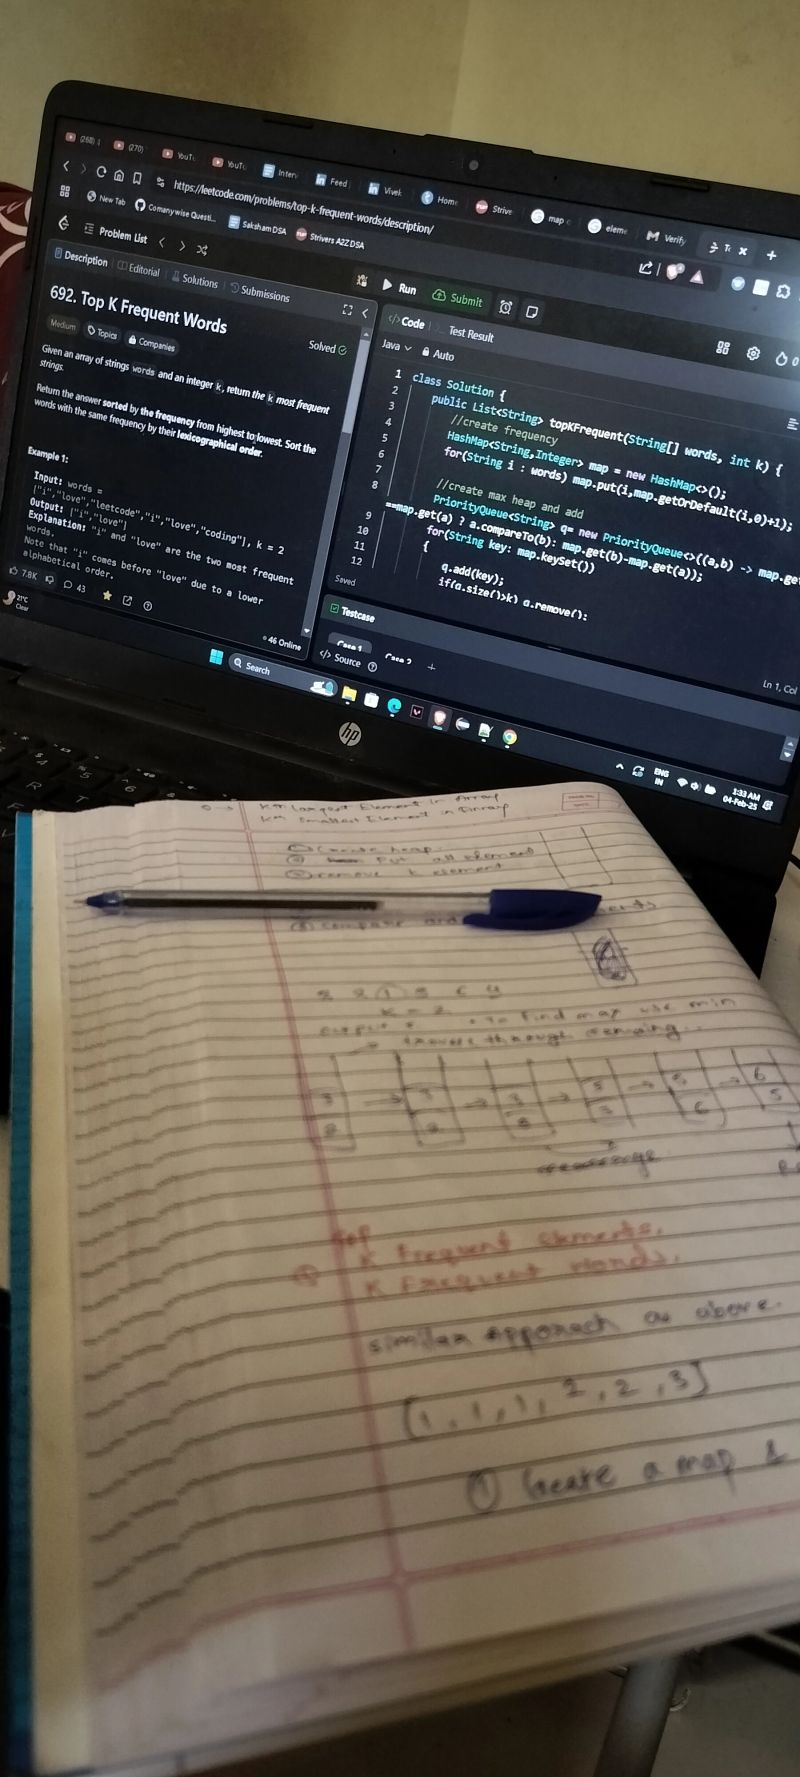 (268)
(270)
YouTu
YouTu
Interv
Feed
Vivek
Home
Strive
map
eleme
Verify
https://leetcode.com/problems/top-k-frequent-words/description/
New Tab
Comanywise Questi...
Saksham DSA
Strivers A2Z DSA
Problem List
Run
Submit
Description
Editorial
Solutions
Submissions
692. Top K Frequent Words
Solved
Medium
Topics
Companies
Given an array of strings words and an integer k, return the k most frequent
strings.
Return the answer sorted by the frequency from highest to lowest. Sort the
words with the same frequency by their lexicographical order.
Example 1:
Input: words =
["i","love","leetcode","i","love","coding"], k = 2
Output: ["i","love"]
Explanation: "i" and "love" are the two most frequent
words.
Note that "i" comes before "love" due to a lower
alphabetical order.
7.8K
43
46 Online
</> Code
Test Result
Java
Auto
1 class Solution {
2 public List<String> topKFrequent(String[] words, int k) {
3 //create frequency
4 HashMap<String,Integer> map = new HashMap<>();
5 for(String i : words) map.put(i,map.getOrDefault(i,0)+1);
6
7 //create max heap and add
8 PriorityQueue<String> q= new PriorityQueue<>((a,b) -> map.ge
==map.get(a) ? a.compareTo(b): map.get(b)-map.get(a));
9 for(String key: map.keySet())
10 {
11 q.add(key);
12 if(q.size()>k) q.remove();
Saved
Ln 1, Col
Testcase
Case 1
Case 2
+
</> Source
21°C
Clear
Search
hp
ENG
IN
1:33 AM
04-Feb-25
Kth largest Element in Array
Kth Smallest Element in Array
① Create heap.
② Put all element
③ remove k element
④ compare and
K = 2
output
To find max use min
rearrange
Top
K Frequent Elements.
K Frequent Words.
similar apporach as above.
[1, 1, 1, 2, 2, 3]
① Create a map &